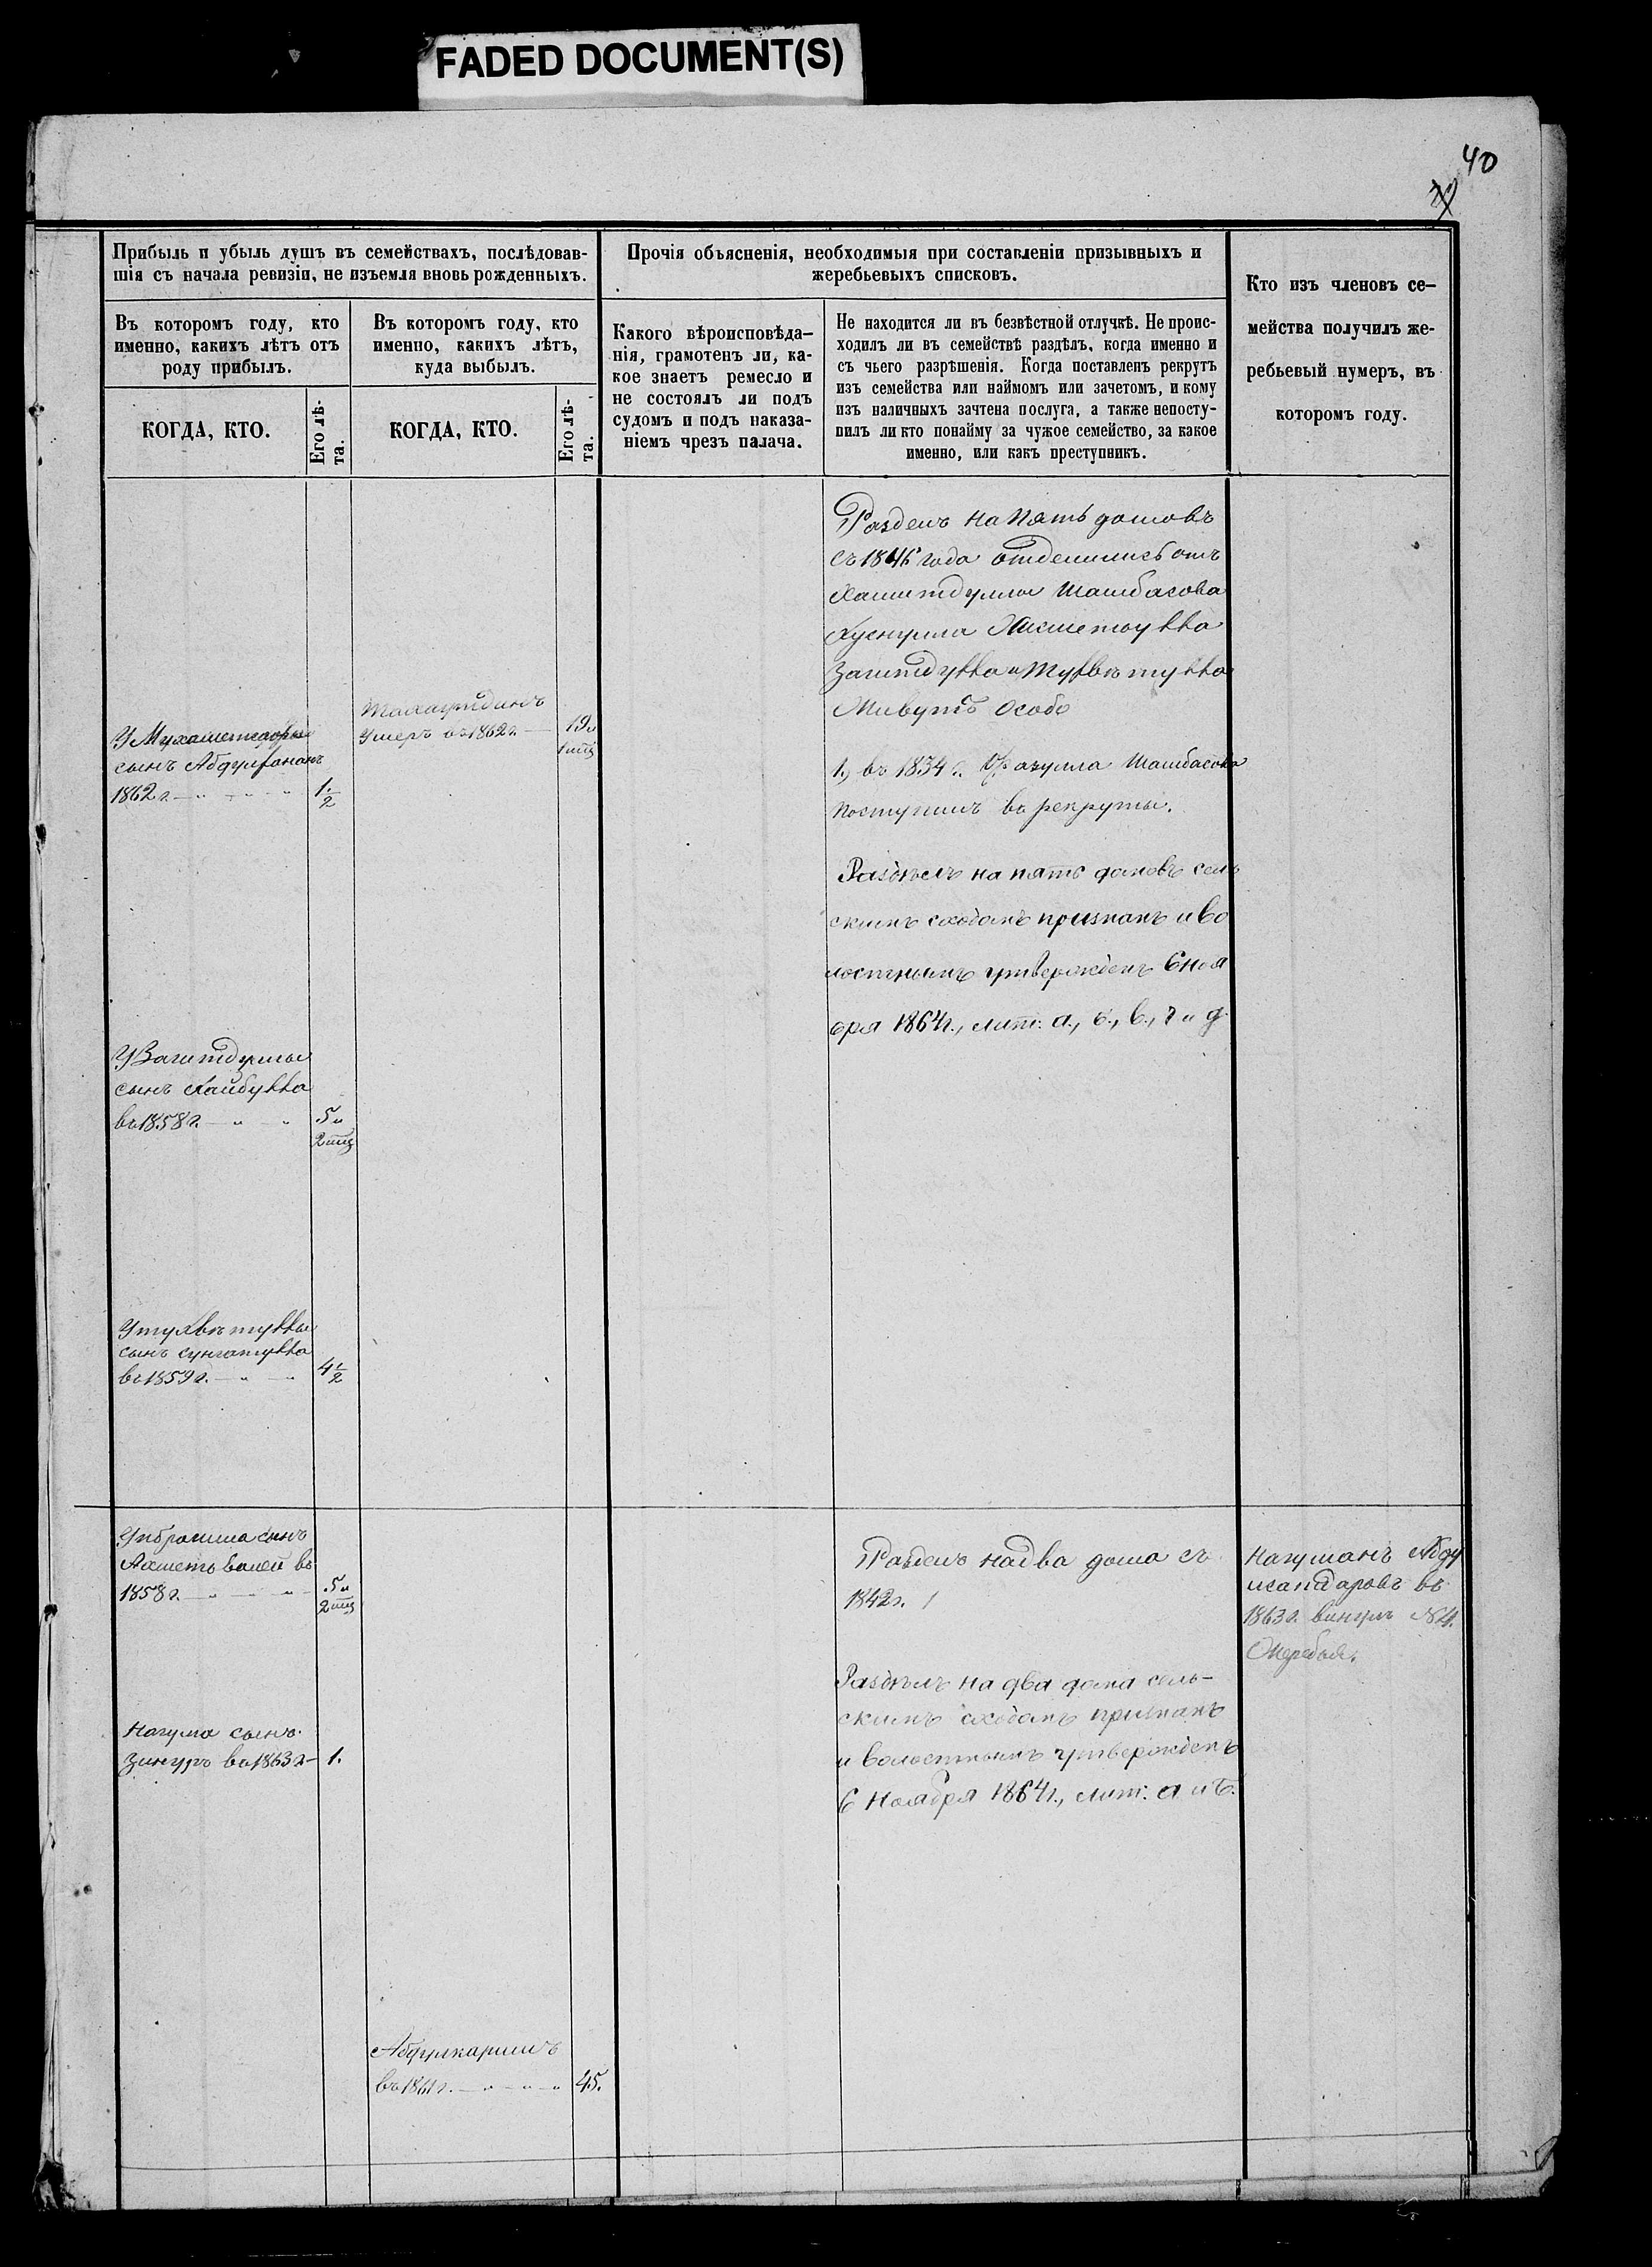 FADED DOCUMENT(S)
40
Прибыль и убыль душъ въ семействахъ, послѣдовав-
шія съ начала ревизіи, не изъемля вновь рожденныхъ.
Въ которомъ году, кто
именно, какихъ лѣтъ отъ
роду прибылъ.
КОГДА, КТО.
Его лѣ-
та.
Въ которомъ году, кто
именно, какихъ лѣтъ,
куда выбылъ.
КОГДА, КТО.
Его лѣ-
та.
Прочія объясненія, необходимыя при составленіи призывныхъ и
жеребьевыхъ списковъ.
Какого вѣроисповѣда-
нія, грамотенъ ли, ка-
кое знаетъ ремесло и
не состоялъ ли подъ
судомъ и подъ наказа-
ніемъ чрезъ палача.
Не находится ли въ безвѣстной отлучкѣ. Не проис-
ходилъ ли въ семействѣ раздѣлъ, когда именно и
съ чьего разрѣшенія. Когда поставленъ рекрутъ
изъ семейства или наймомъ или зачетомъ, и кому
изъ наличныхъ зачтена послуга, а также непосту-
пилъ ли кто понайму за чужое семейство, за какое
именно, или какъ преступникъ.
Кто изъ членовъ се-
мейства получилъ же-
ребьевый нумеръ, въ
которомъ году.
У
сынъ
1862 г. 1 1/2
У Загитдуллы
сынъ Хайбулла
въ 1858 г. 5
2 мц
У тухватуллы
сынъ сунгатулла
въ 1859 г. 4 1/2
Тахаутдинъ
Умеръ въ 1862 г. 19
1 мц
Разделъ на Пять домовъ
съ 1846 года отделились отъ
Хамитдуллы Шамбасова
Хуснулла
Загитдулла и Тухватулла
Живутъ Особо
1., въ 1834 г. Шамбасовъ
поступилъ въ рекруты.
Раздѣлъ на пять домовъ сель
скимъ сходомъ признанъ и во
лостнымъ утвержденъ 6 ноя
бря 1864 г., лит: а., б., в., г и д.
У ибрагима сынъ
Ахметьвалей въ
1858 г. 5
2 мц
Нагума сынъ
Зинуръ въ 1863 г. 1.
Абдулкаримъ
въ 1861 г. 45.
Разделъ на два дома съ
1842 г.
Раздѣлъ на два дома сель-
скимъ сходомъ признанъ
и волостнымъ утвержденъ
6 Ноября 1864 г., лит: а и б.
Нагуманъ Абду
въ
1863 г. винулъ №4.
Жеребья.